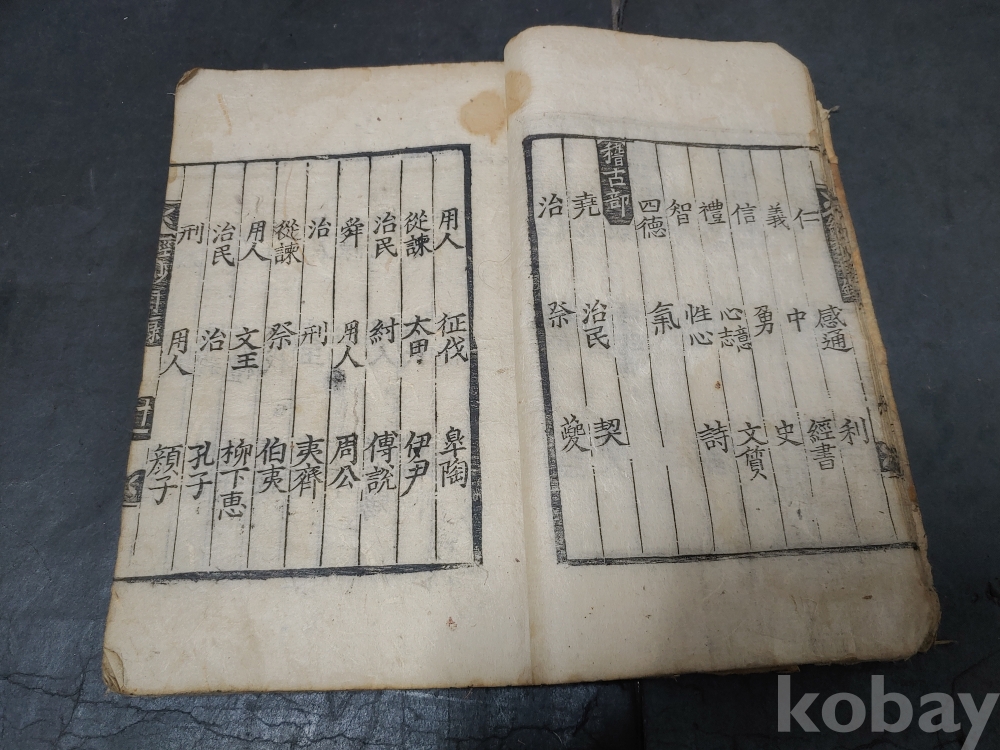 仁 感通 利
義 中 經書
信 勇 史
禮 心志意 文質
智 性心 詩
四德 氣
稽古部
堯 治民 契
治 祭 夔
用人 征伐 皐陶
從諫 太甲 伊尹
治民 紂 傅說
舜 用人 周公
治 刑 夷齊
從諫 祭 伯夷
用人 文王 柳下惠
治民 治 孔子
刑 用人 顔子
kobay